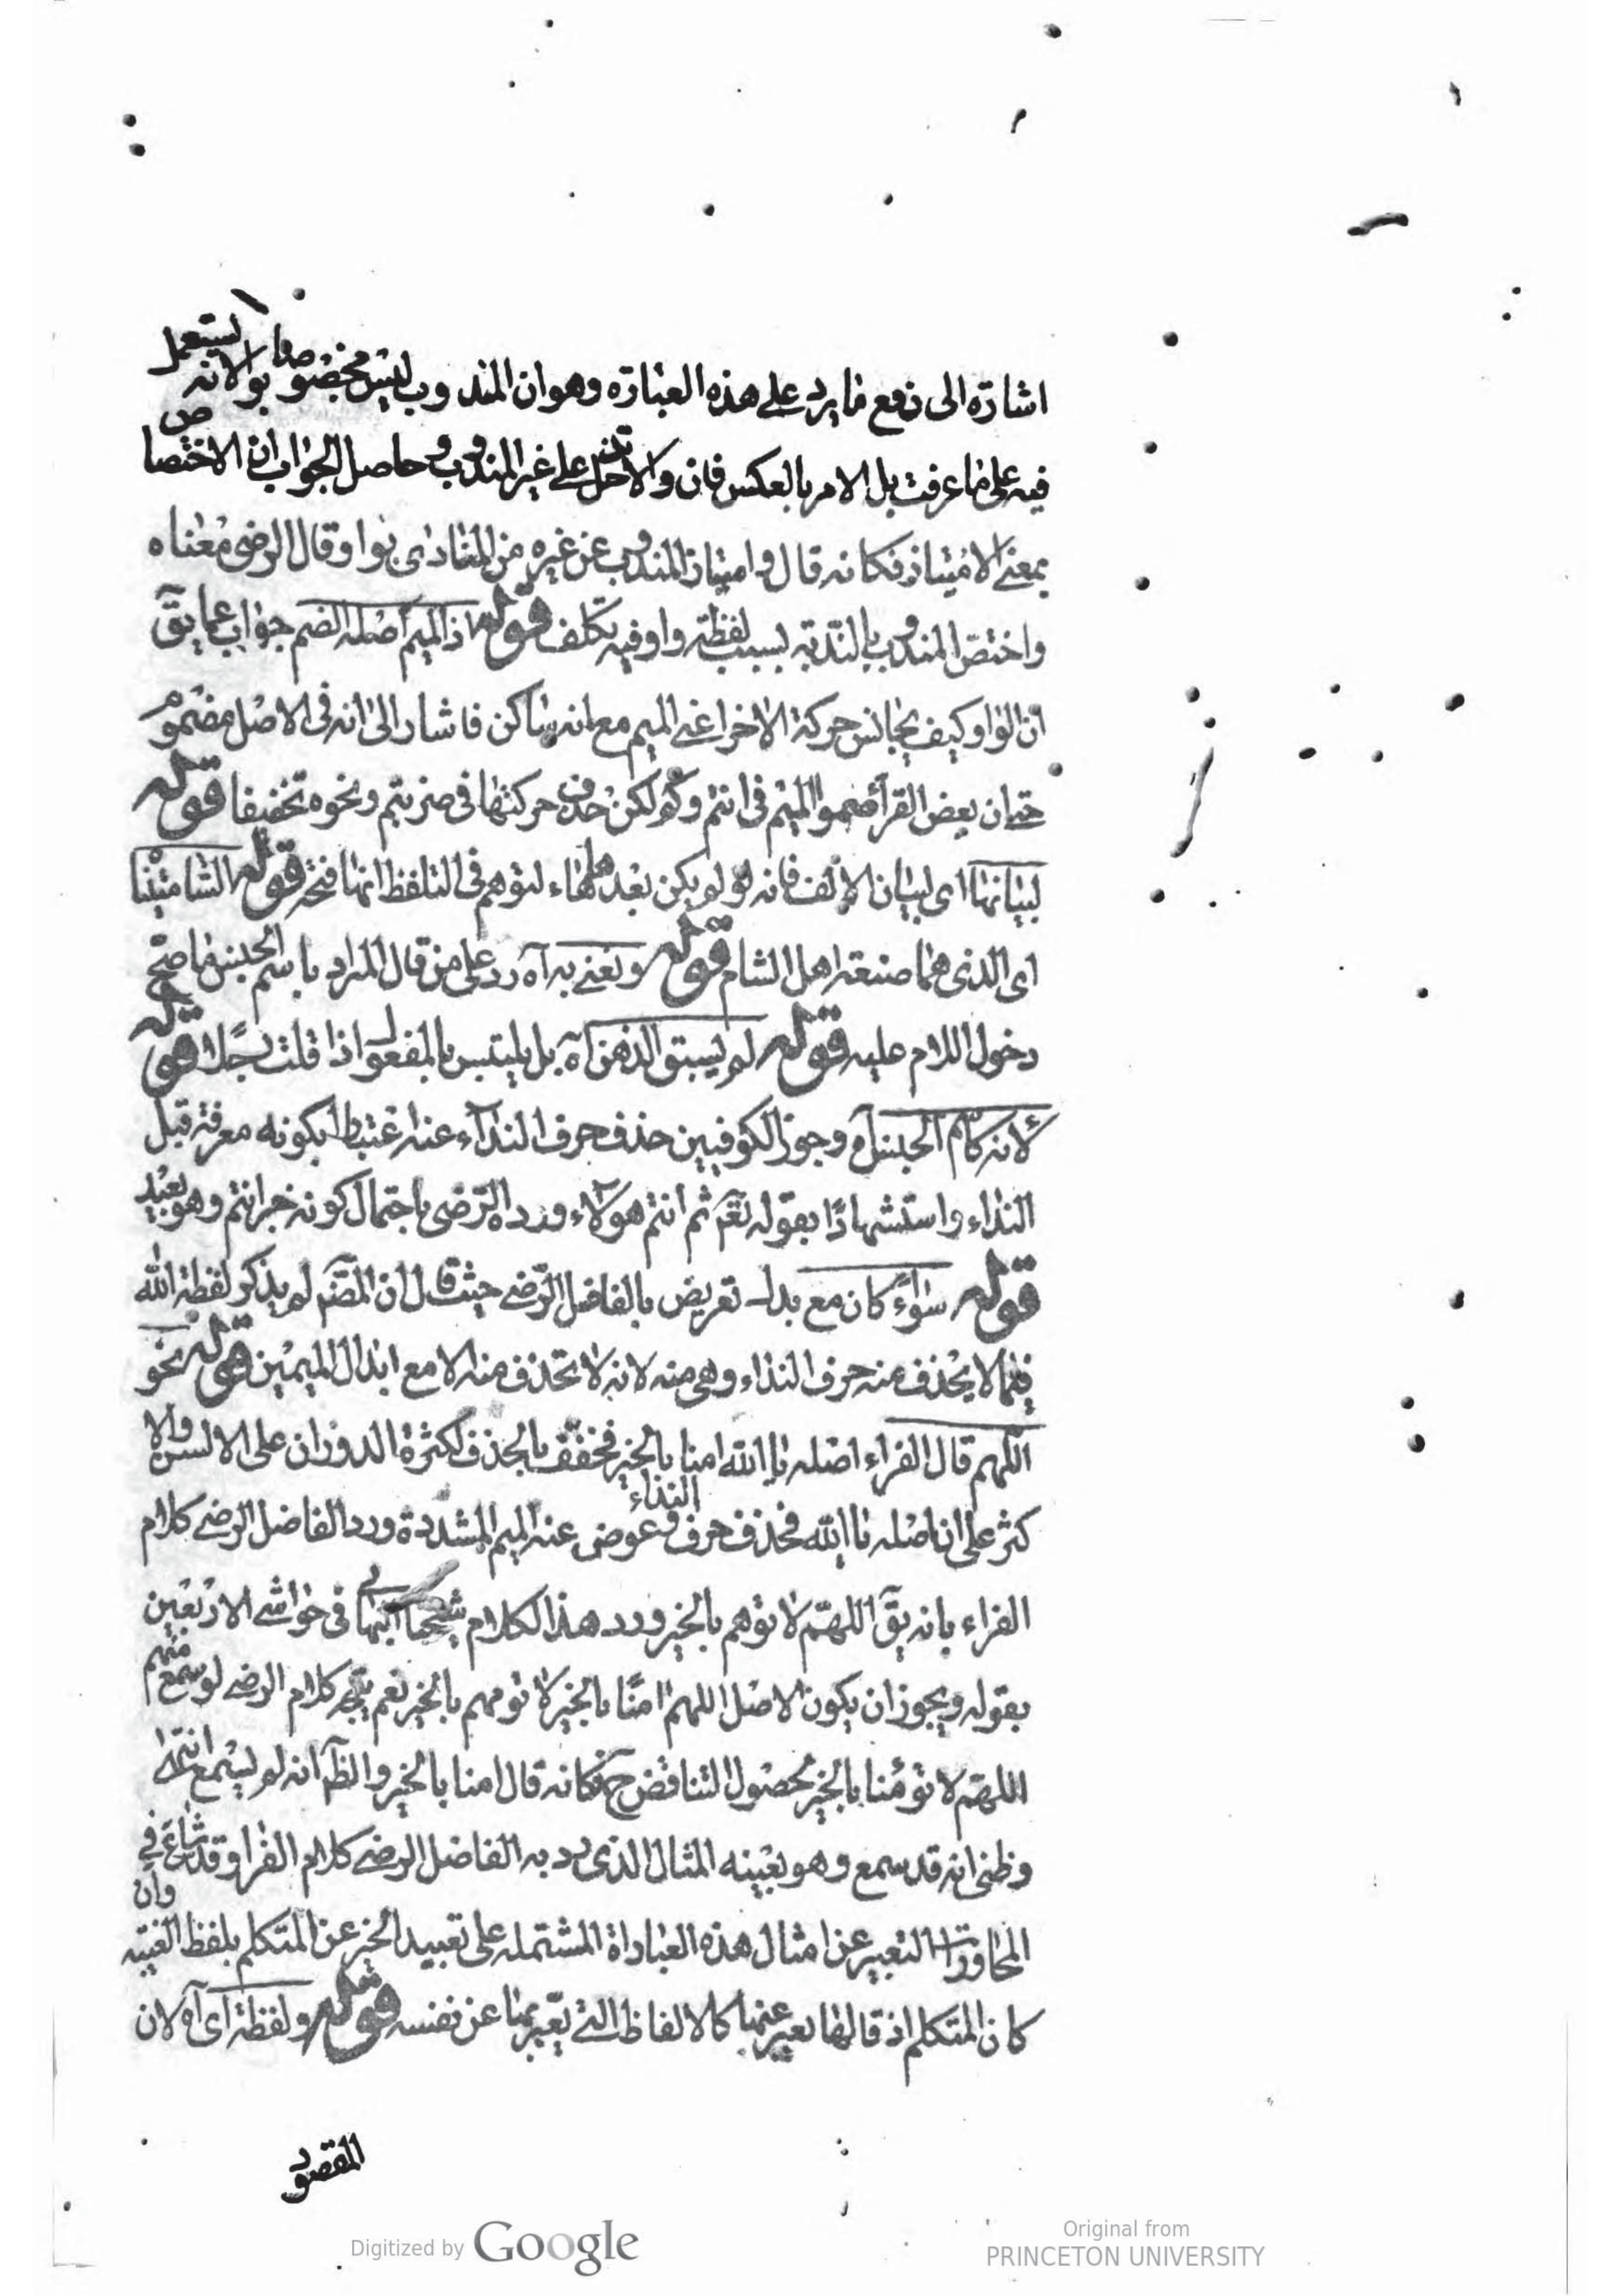 اشارة الى دفع ما يرد على هذه العبارة وهو ان المندوب ليس مخصوصا بوا لانه لا يستعمل
فيه على ما عرفت بل الامر بالعكس فان والا تدخل على غير المندوب وحاصل الجواب ان الاختصاص
بمعنى الامتياز فكانه قال وامتياز المندوب عن غيره من المنادى بوا وقال الرضى معناه
واختص المندوب بالندبة بسبب لفظة وا وفيه تكلف قوله اذ الميم اصله الضم جواب عما يق
ان الواو كيف يجانس حركة الاخر اعنى الميم مع انه ساكن فاشار الى انه فى الاصل مضموم
حتى ان بعض القرأ ضموا الميم فى انتم وكم لكن حذف حركتها فى ضربتم ونحوه تخفيفا قوله
لبيانها اى لبيان الالف فانه لو لم يكن بعدها هاء لتوهم فى التلفظ انها فتحة قوله الشاميتنا
اى الذى هما صنعة اهل الشام قوله ونعنى به آه رد على من قال المراد باسم الجنس ما صح
دخول اللام عليه قوله لم يسبق الذهن آه بل يلتبس بالمفعول اذا قلت رجلا قوله
لانه كاسم الجنس آه وجوز الكوفيين حذف حرف النداء عنه اغتباطا بكونه معرفة قبل
النداء واستشهادا بقوله تعم ثم انتم هؤلاء ورده الرضى باحتمال كونه خبر انتم وهو بعيد
قوله سواء كان مع بدل تعريض بالفاضل الرضى حيث قال ان المص لم يذكر لفظة الله
فيما لا يحذف منه حرف النداء وهى منه لانه لا تحذف منه الا مع ابدال الميمين قوله نحو
اللهم قال الفراء اصله يا الله امنا بالخير فخفف بالحذف لكثرة الدوران على الالسن والا
كثر على ان اصله يا الله فحذف حرف النداء وعوض عنه الميم المشددة ورد الفاضل الرضى كلام
الفراء بانه يق اللهم لا تؤمهم بالخير ورد هذا الكلام شيخنا البهائى فى حواشى الاربعين
بقوله ويجوز ان يكون الاصل اللهم امنا بالخير لا تؤمهم بالخير نعم يتجه كلام الرضى لو سمع منهم
اللهم لا تؤمنا بالخير لحصول التناقض ح فكانه قال امنا بالخير والظ انه لم يسمع انتهى
وظنى انه قد سمع وهو بعينه المثال الذى رد به الفاضل الرضى كلام الفرا وقد شاع فى
المحاورات التعبير عن امثال هذه العباراة المشتمله على تعبيد الخير عن المتكلم بلفظ الغيبة وان
كان المتكلم اذ قالها يعبر عنها كالالفاظ التى يعبر بها عن نفسه قوله ولفظة اى آه لان
المقصود
Digitized by Google
Original from
PRINCETON UNIVERSITY